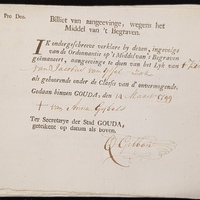 Pro Deo.
Billiet van aangeevinge, wegens het
Middel van 't Begraven.
IK ondergeschreve verklare by dezen, ingevolge
van de Ordonnantie op 't Middel van 't Begraven
geëmaneert, aangevinge te doen van het Lyk van
als gehoorende onder de Classe van d' onvermogende.
Gedaan binnen GOUDA, den 1799
van Anna
Ter Secretarye der Stad GOUDA,
geteekent op datum als boven.